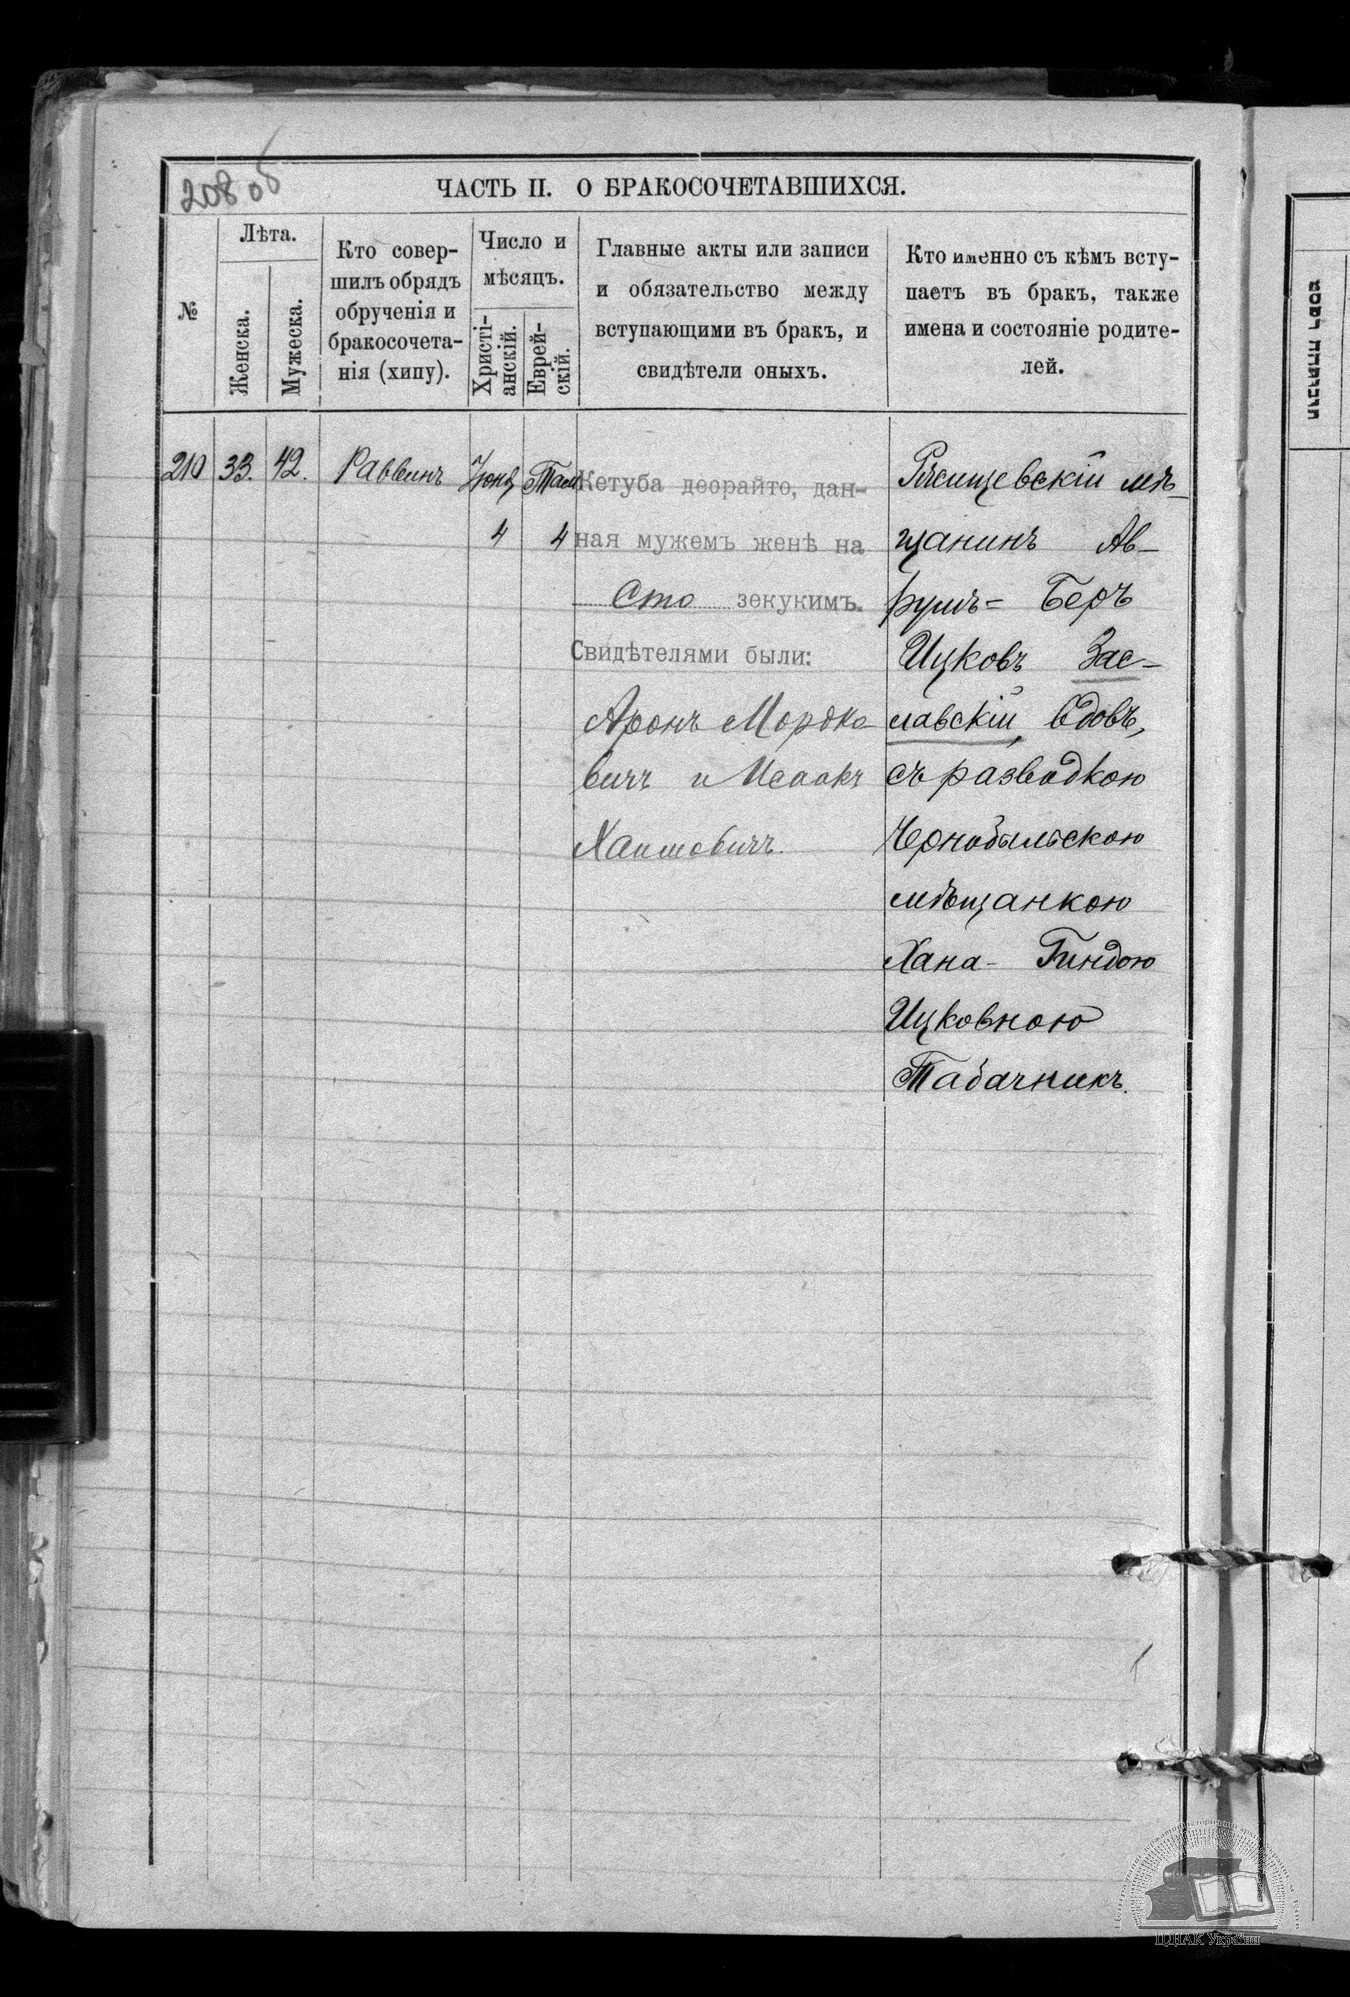 208 об
ЧАСТЬ II. О БРАКОСОЧЕТАВШИХСЯ.
№
Лѣта.
Женска.
Мужеска.
Кто совер-
шилъ обрядъ
обрученія и
бракосочета-
нія (хипу).
Число и
мѣсяцъ.
Христі-
анскій.
Еврей-
скій.
Главные акты или записи
и обязательство между
вступающими въ бракъ, и
свидѣтели оныхъ.
Кто именно съ кѣмъ всту-
паетъ въ бракъ, также
имена и состояніе родите-
лей.
210
33.
42.
Раввинъ
Іюня
4
Там
4
Кетуба деорайто, дан-
ная мужемъ женѣ на
Сто зекукимъ.
Свидѣтелями были:
Аронъ Мордко
вичъ и Исаакъ
Хаимовичъ.
Ржищевскій мѣ-
щанинъ Ав-
румъ-Беръ
Ицковъ Зас-
лавскій, вдовъ,
съ разводкою
Чернобыльскою
мѣщанкою
Хана-Гиндою
Ицковною
Табачникъ.
ЦДІАК України